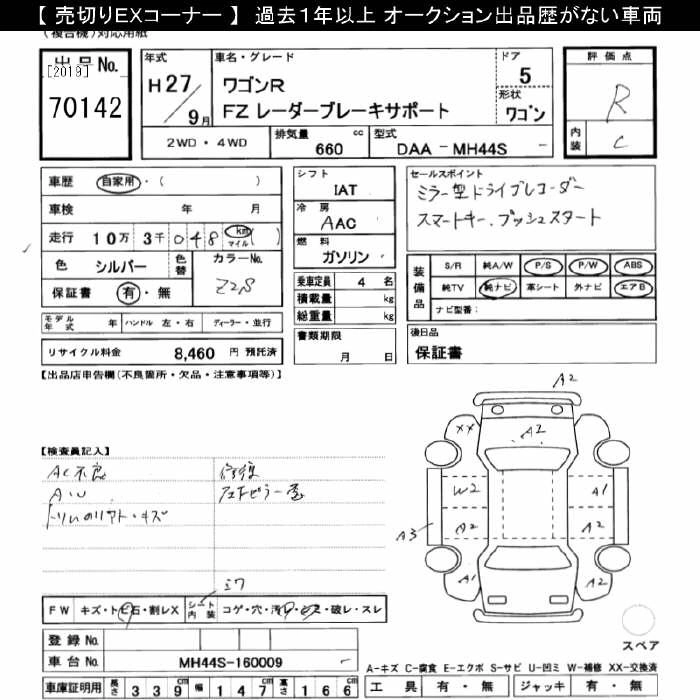 【 売切りEXコーナー 】 過去1年以上 オークション出品歴がない車両
(複合機) 対応用紙
出 品 No.
[2019]
70142
年式
H27/9月
車名・グレード
ワゴンR
FZ レーダーブレーキサポート
ドア
5
形状
ワゴン
評 価 点
R
内装
C
2WD・4WD
排気量 660 cc
型式 DAA - MH44S -
車歴 自家用・( )
車検 年 月
走行 10万 3千048 km マイル ( )
色 シルバー 色替
カラーNo. Z2S
保証書 有・無
モデル年式 年 ハンドル 左・右 ディーラー・並行
リサイクル料金 8,460 円 預託済
シフト
IAT
冷 房
AAC
燃 料
ガソリン
乗車定員 4 名
積載量 kg
総重量 kg
書類期限
月 日
セールスポイント
ミラー型ドライブレコーダー
スマートキー、プッシュスタート
装備品
S/R 純A/W P/S P/W ABS
純TV 純ナビ 革シート 外ナビ エアB
ナビ型番:
後日品
保証書
【出品店申告欄(不良箇所・欠品・注意事項等)】
【検査員記入】
AC不良
AU
修復
A2
XX
A2
W2
A1
A3
A2
A2
A1
A2
スペア
F W キズ・トビ石・割レX
シート内装 コゲ・穴・汚レ・シミ・破レ・スレ
登 録 No.
車 台 No. MH44S-160009
車庫証明用 長さ 339 幅 147 高さ 166
A-キズ C-腐食 E-エクボ S-サビ U-凹ミ W-補修 XX-交換済
工 具 有・無 ジャッキ 有・無